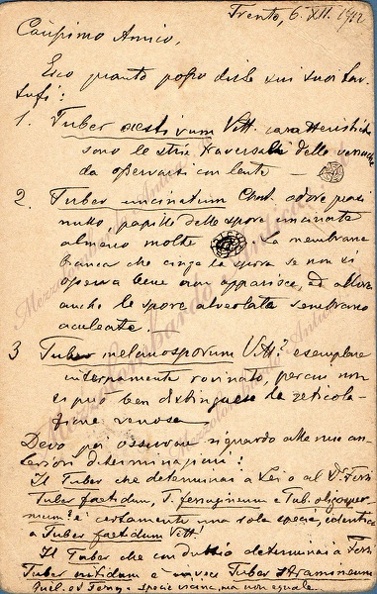 Trento, 6. XII. 1912
Carissimo Amico,
Ecco quanto posso dirle sui suoi tar-
tufi:
1. Tuber aestivum Vitt. caratteristiche
sono le strie trasversali delle verruche
da osservarsi con lente —
2. Tuber uncinatum Chat. odore quasi
nullo, papille delle spore uncinate
almeno molte. La membrana
bianca che cinge la spora se non si
osserva bene non apparisce, ed allora
anche le spore alveolate sembrano
aculeate.
3 Tuber melanosporum Vitt.? esemplare
internamente rovinato, percui non
si può ben distinguere la reticola-
zione venosa
Devo poi osservare riguardo alle sue an-
teriori determinazioni:
Il Tuber che determinai a Lei o al Dr.
Tuber foetidum, T. ferrugineum e Tub. oligosper-
mum? è certamente una sola specie, identica
a Tuber foetidum Vitt!
Il Tuber che con dubbio determinai a
Tuber nitidum è invece Tuber
specie vicina, ma non eguale.